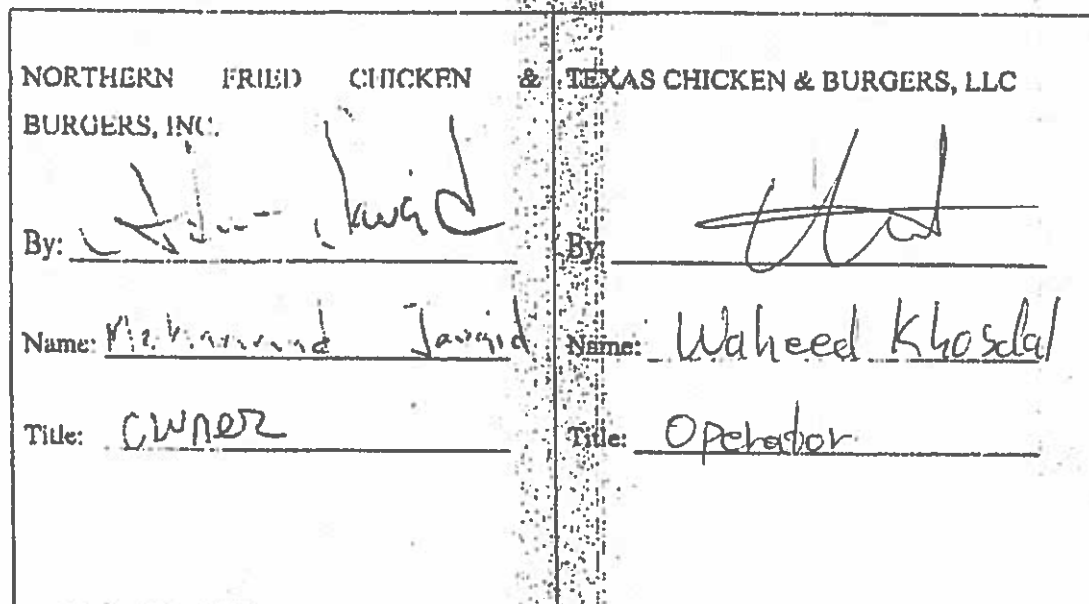 NORTHERN FRIED CHICKEN &
BURGERS, INC.
By:
Name: Javaid
Title: Owner
TEXAS CHICKEN & BURGERS, LLC
By:
Name: Waheed Khosdal
Title: Operator